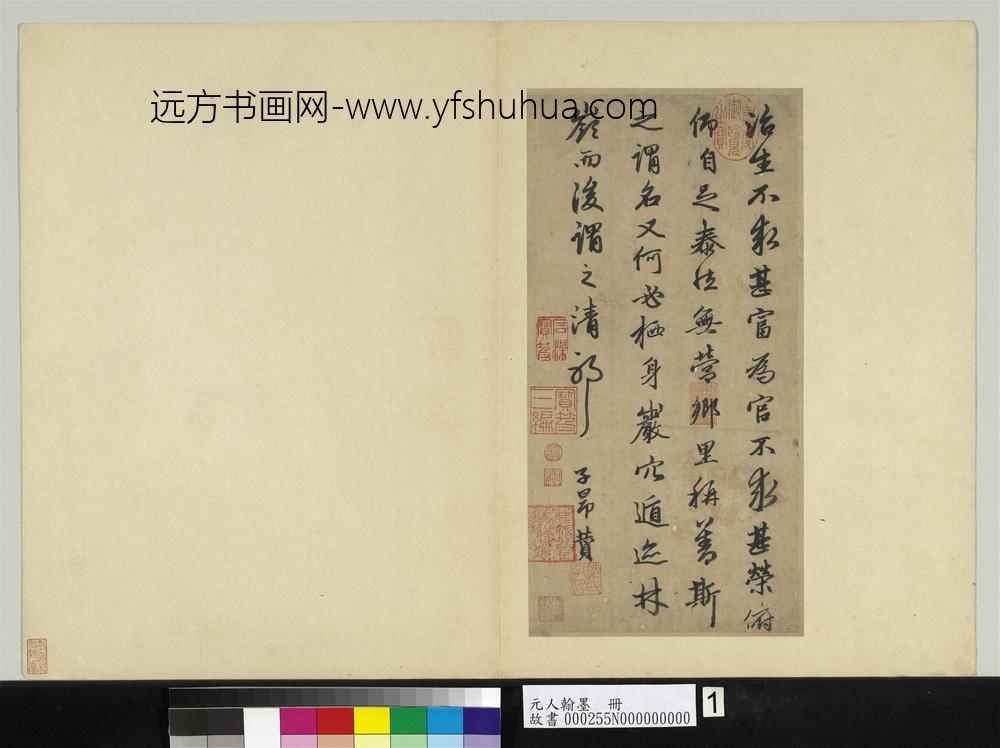 远方书画网-www.yfshuhua.com
治生不求甚富為官不求甚榮俯
仰自足泰然無營鄉里稱善斯
之謂名又何必栖身巖穴遁迹林
嶺而後謂之清耶
子昂贊
寶笈
三編
元人翰墨 冊
故書 000255N000000000
1